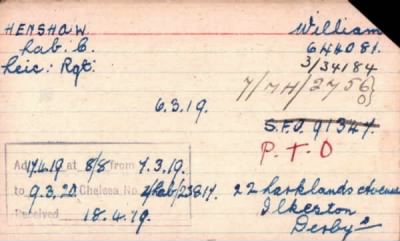 HENSHAW. William
Lab. C. 644081.
Leic: Rgt. 3/34184
7/MH/2756
6.3.19.
S.F.O. 91347.
P.T.O
Ad 17.4.19 at 8/8 from 7.3.19.
to 9.3.20 Chelsea No. 2/Lab/23817. 22 Larklands Avenue
Received 18.4.19. Ilkeston
Derby